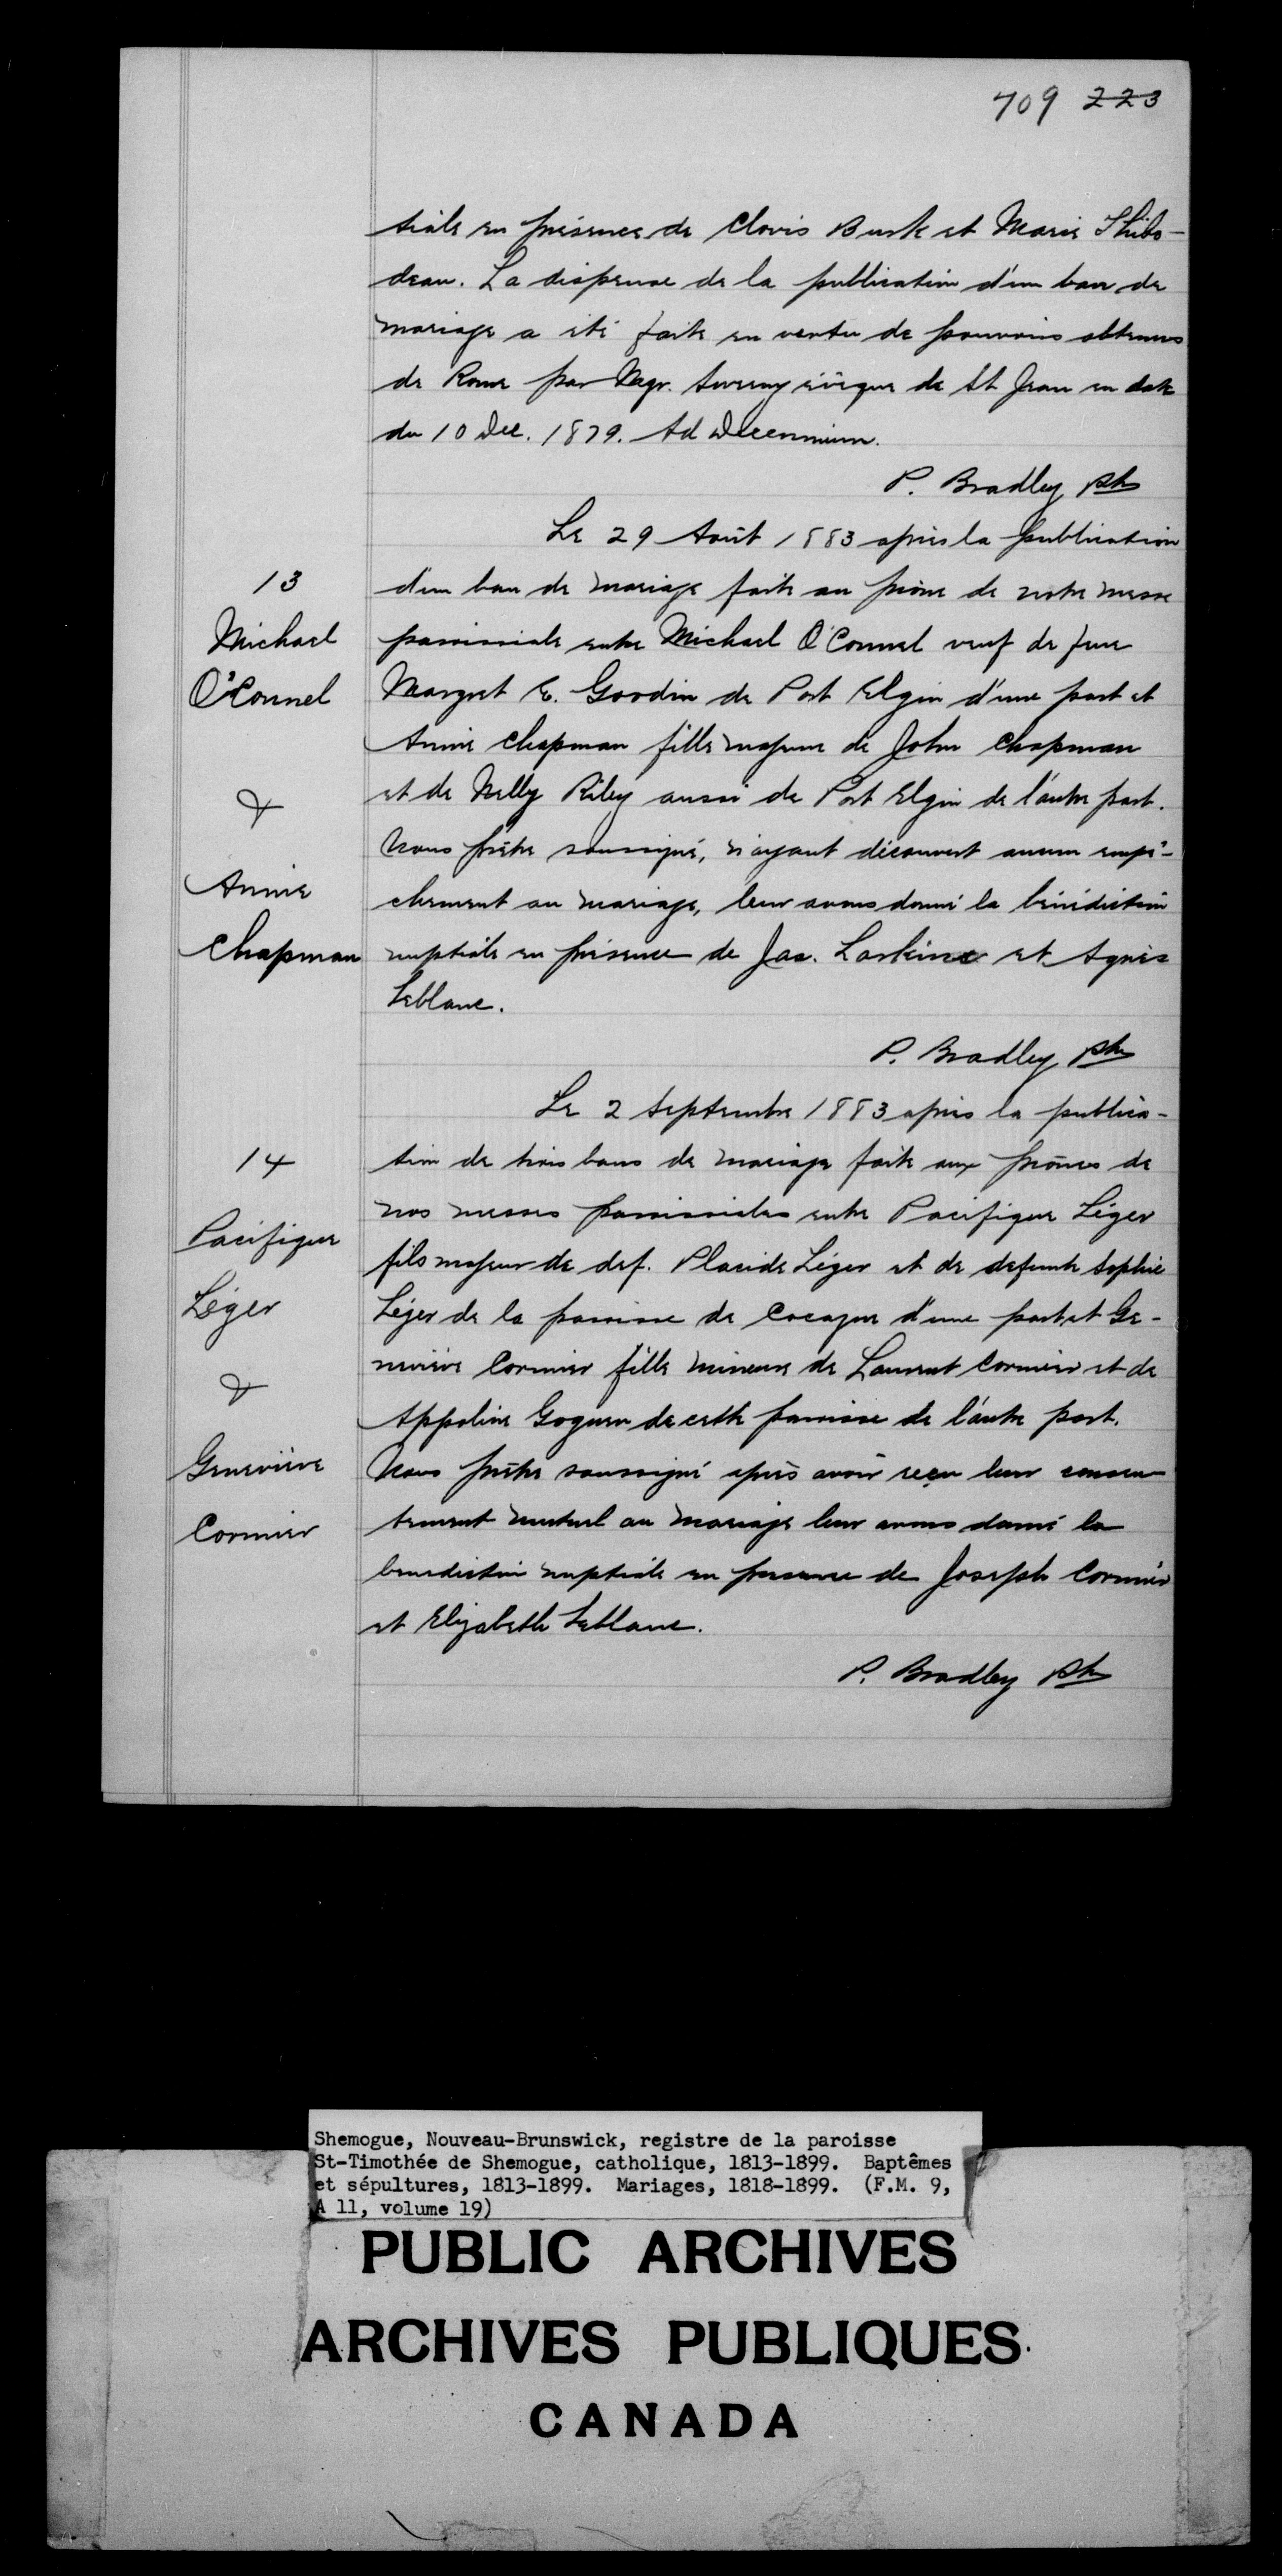 709 223
tiale en présence de Clovis Burk et Marie Thibo-
deau. La dispense de la publication d'un ban de
mariage a été faite en vertu de pouvoirs obtenus
de Rome par Mgr. Sweeny évêque de St Jean en date
du 10 Dec. 1879. Ad Decennium.
P. Bradley Ptr
Le 29 Août 1883 après la publication
13
d'un ban de mariage faite au prône de notre messe
Michael
paroissiale entre Michael O'Connel veuf de feue
O'Connel
Margret E. Goodin de Port Elgin d'une part et
Annie Chapman fille majeure de John Chapman
&
et de Nelly Riley aussi de Port Elgin de l'autre part.
Nous prêtre soussigné, n'ayant découvert aucun empê-
Annie
chement au mariage, leur avons donné la bénédiction
Chapman
nuptiale en présence de Jas. Larkins et Agnès
Leblanc.
P. Bradley Ptr
Le 2 Septembre 1883 après la publica-
14
tion de trois bans de mariage faite aux prônes de
nos messes paroissiales entre Pacifique Léger
Pacifique
fils majeur de def. Placide Léger et de defunte Sophie
Léger
Léjer de la paroisse de Cocagne d'une part et Ge-
neviève Cormier fille mineure de Laurent Cormier et de
&
Appoline Goguen de cette paroisse de l'autre part.
Geneviève
Nous prêtre soussigné après avoir reçu leur consen
Cormier
tement mutuel au mariage leur avons donné la
benediction nuptiale en presence de Joseph Cormier
et Elizabeth Leblanc.
P. Bradley Ptr
Shemogue, Nouveau-Brunswick, registre de la paroisse
St-Timothée de Shemogue, catholique, 1813-1899. Baptêmes
et sépultures, 1813-1899. Mariages, 1818-1899. (F.M. 9,
A 11, volume 19)
PUBLIC ARCHIVES
ARCHIVES PUBLIQUES
CANADA